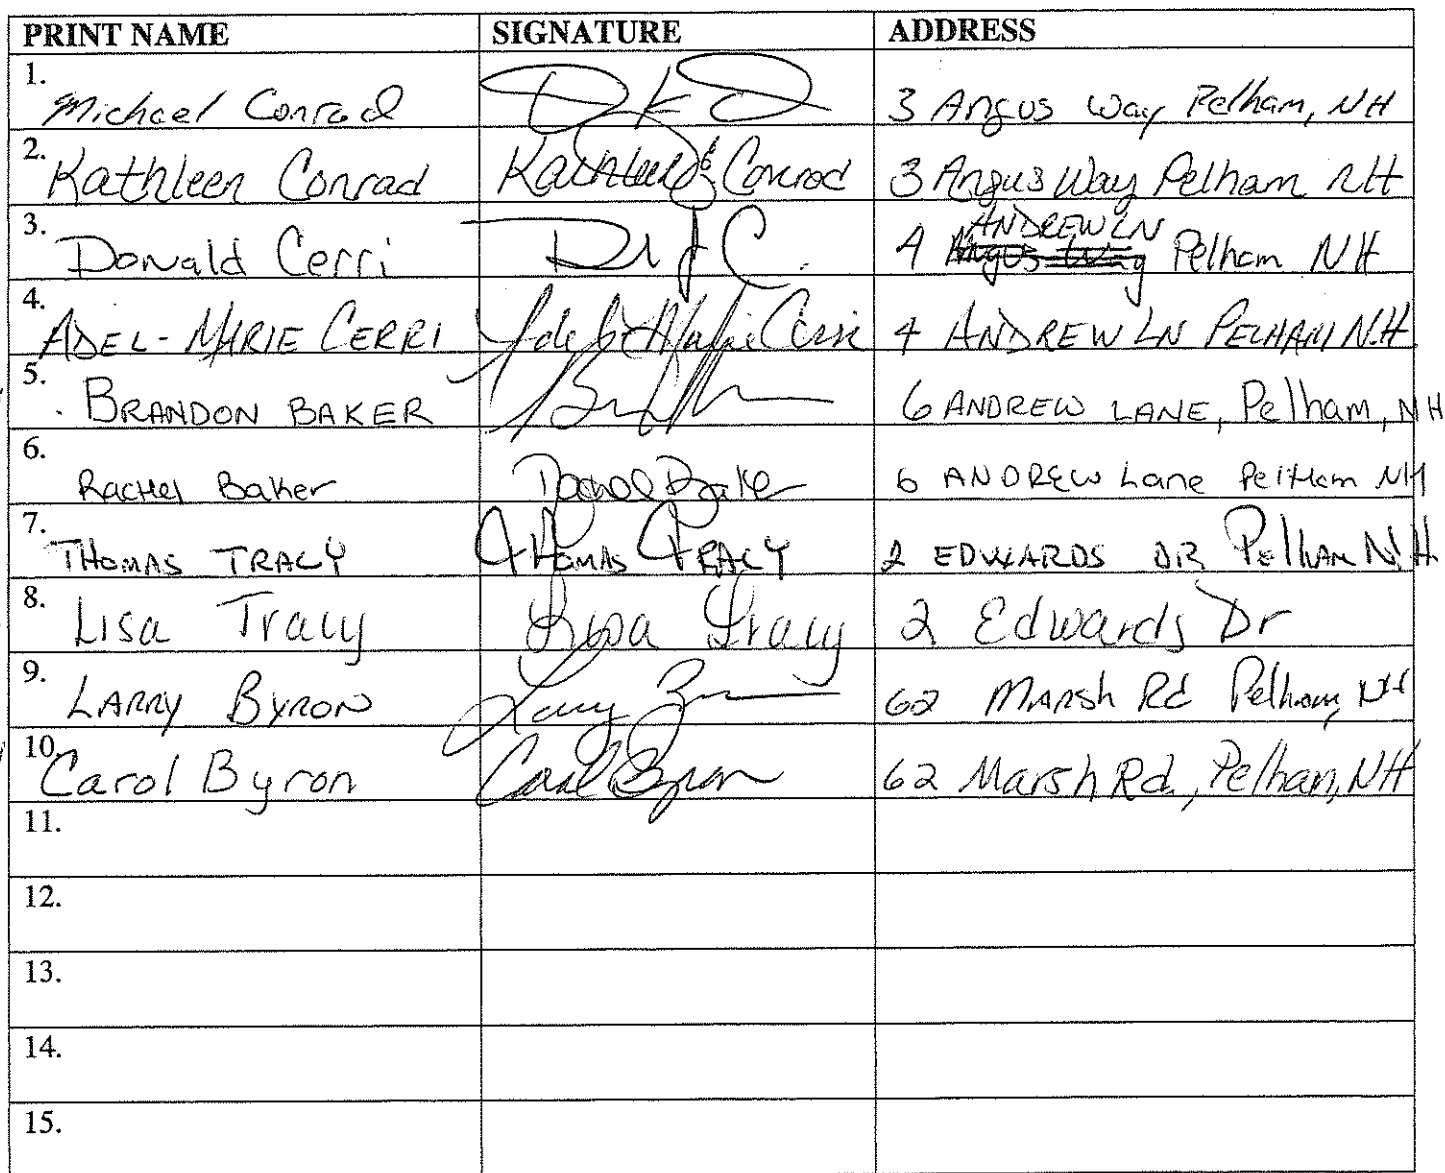 PRINT NAME SIGNATURE ADDRESS
1. Michael Conrad 3 Angus Way Pelham, NH
2. Kathleen Conrad Kathleen Conrad 3 Angus Way Pelham NH
3. Donald Cerri D C. 4 Angus Way ANDREW LN Pelham NH
4. ADEL-MARIE CERRI Adel-Marie Cerri 4 ANDREW LN PELHAM N.H.
5. BRANDON BAKER 6 ANDREW LANE, Pelham, NH
6. Rachel Baker Rachel Baker 6 ANDREW Lane Pelham NH
7. THOMAS TRACY THOMAS TRACY 2 EDWARDS DR Pelham NH
8. Lisa Tracy Lisa Tracy 2 Edwards Dr
9. LARRY BYRON Larry 62 Marsh Rd Pelham, NH
10. Carol Byron Carol Byron 62 Marsh Rd., Pelham, NH
11.
12.
13.
14.
15.